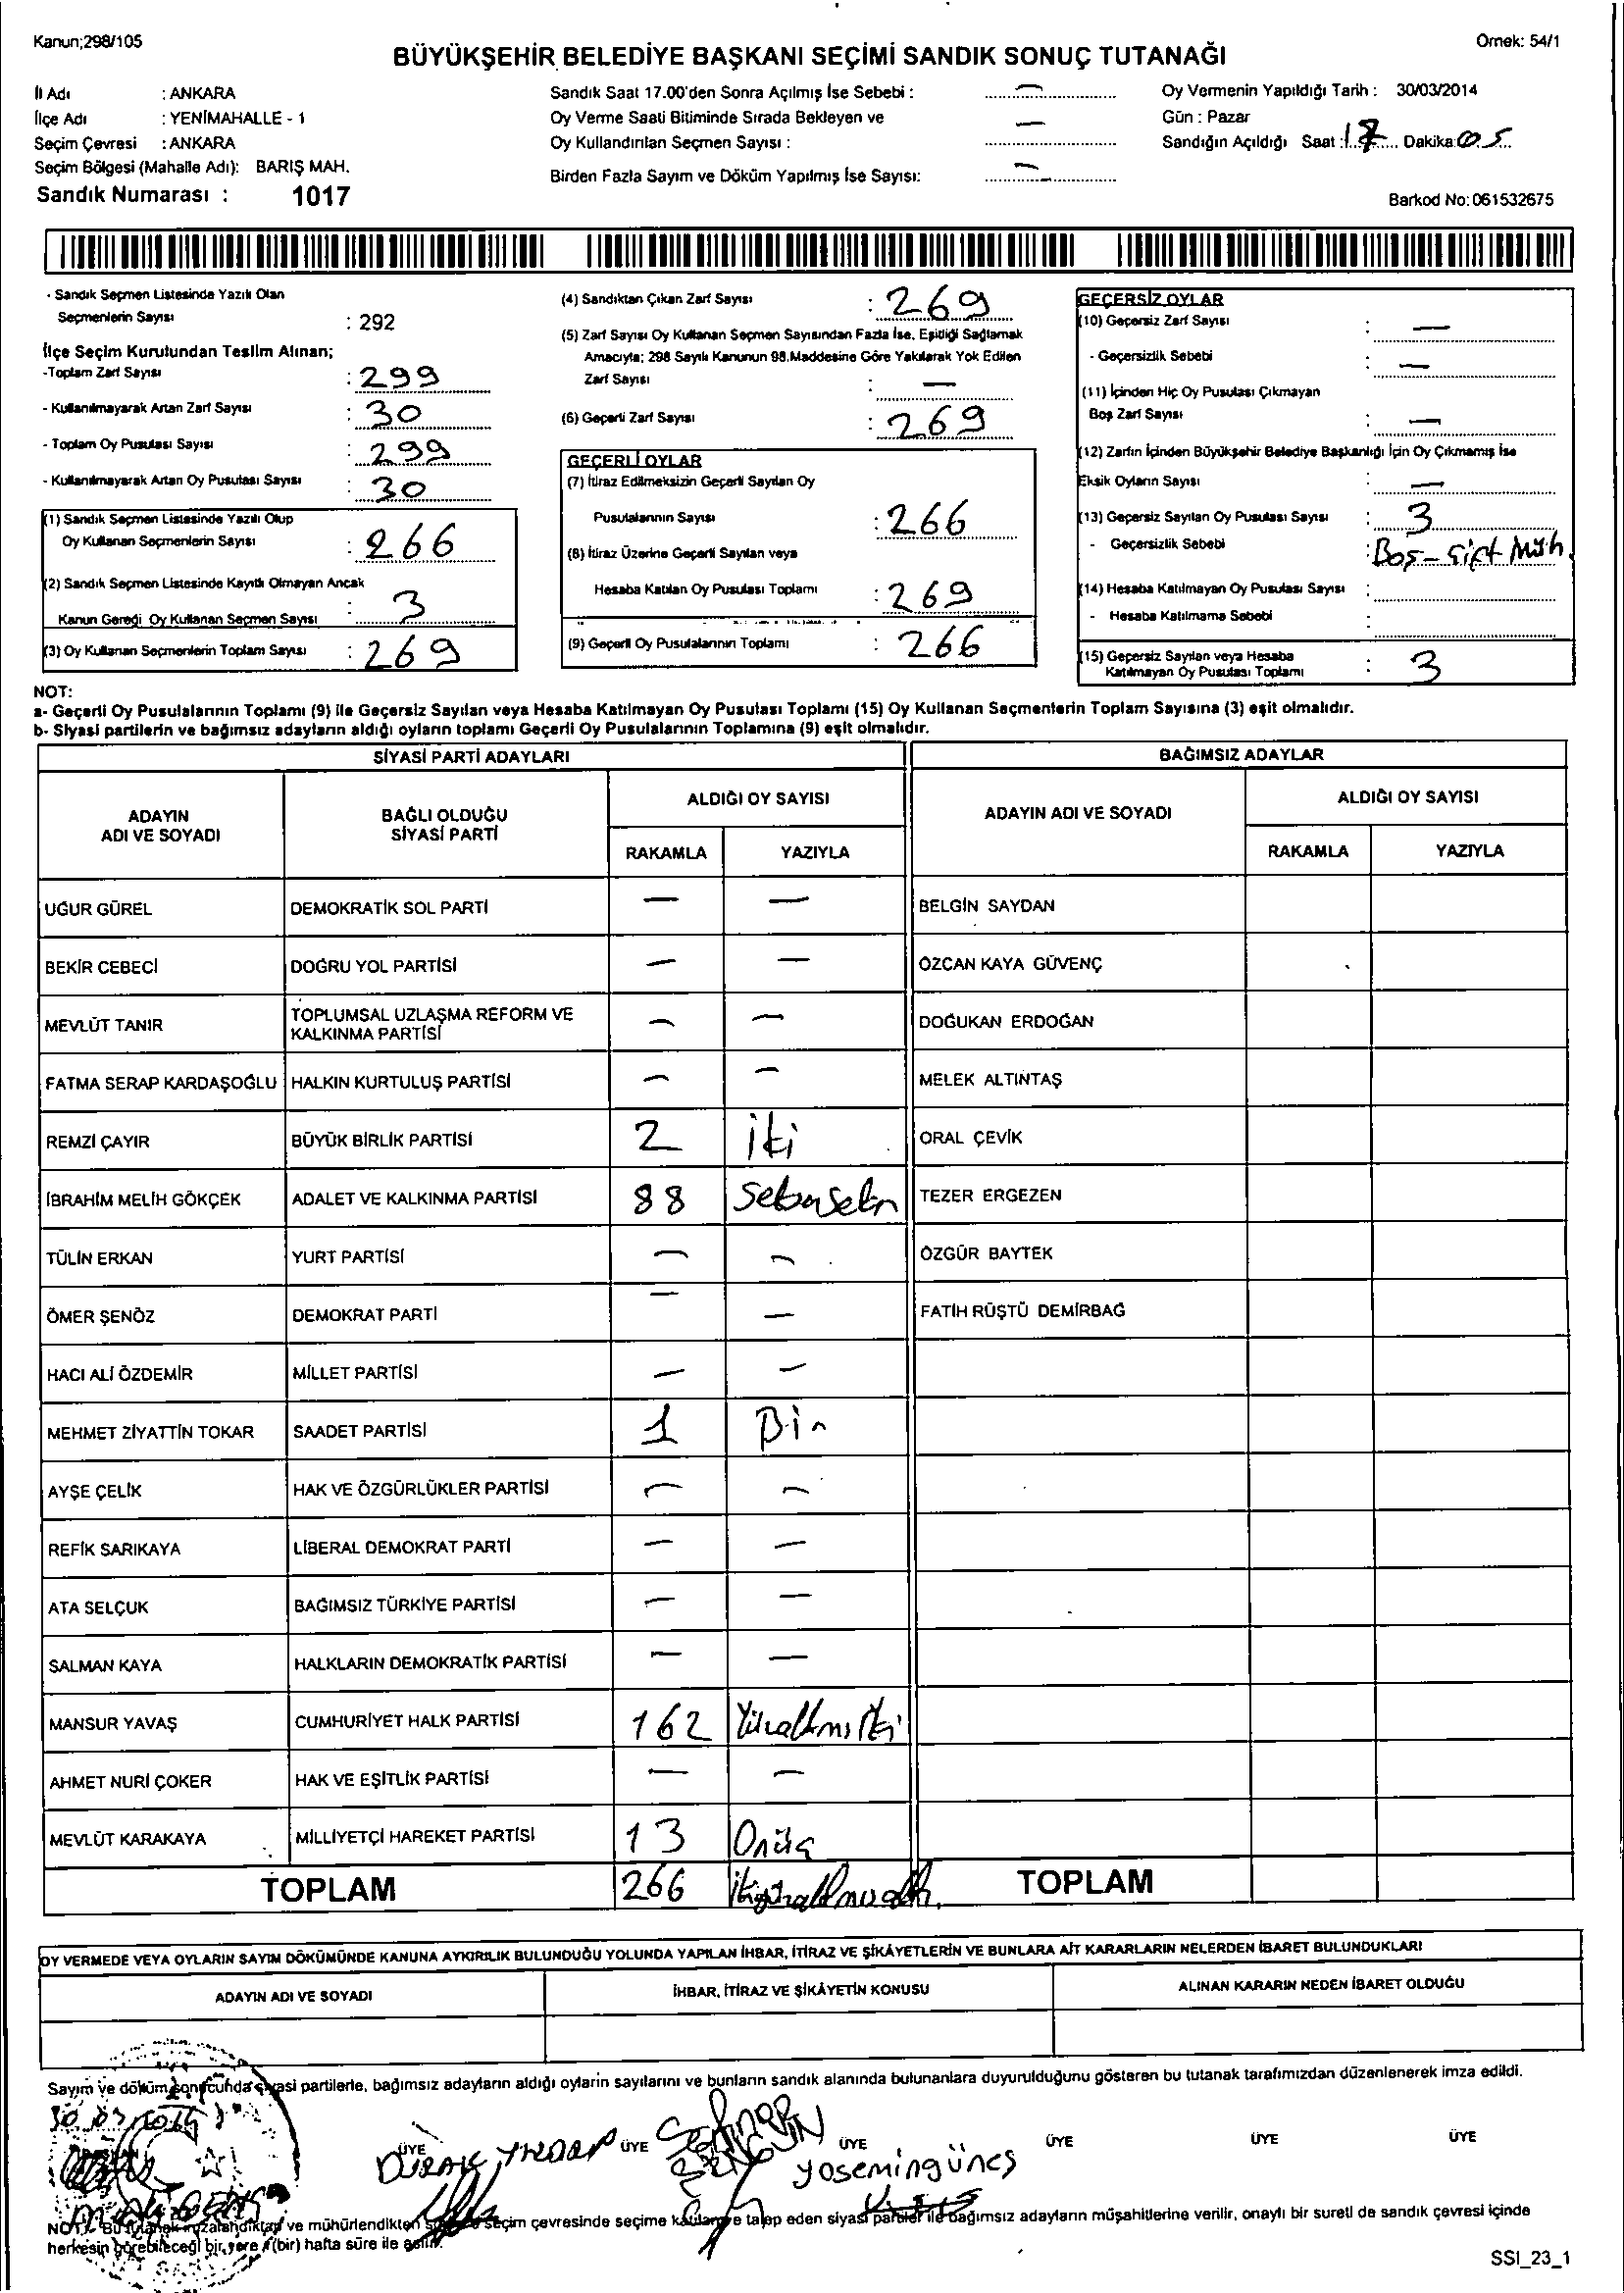 Kanun;298/105
Örnek: 54/1
BÜYÜKŞEHİR BELEDİYE BAŞKANI SEÇİMİ SANDIK SONUÇ TUTANAĞI
İl Adı : ANKARA
İlçe Adı : YENİMAHALLE - 1
Seçim Çevresi : ANKARA
Seçim Bölgesi (Mahalle Adı): BARIŞ MAH.
Sandık Numarası : 1017
Sandık Saat 17.00'den Sonra Açılmış İse Sebebi : —
Oy Verme Saati Bitiminde Sırada Bekleyen ve
Oy Kullandırılan Seçmen Sayısı : —
Birden Fazla Sayım ve Döküm Yapılmış İse Sayısı: —
Oy Vermenin Yapıldığı Tarih : 30/03/2014
Gün : Pazar
Sandığın Açıldığı Saat : 17 Dakika 05
Barkod No: 061532675
- Sandık Seçmen Listesinde Yazılı Olan
Seçmenlerin Sayısı : 292
İlçe Seçim Kurulundan Teslim Alınan;
-Toplam Zarf Sayısı : 299
- Kullanılmayarak Artan Zarf Sayısı : 30
- Toplam Oy Pusulası Sayısı : 299
- Kullanılmayarak Artan Oy Pusulası Sayısı : 30
(1) Sandık Seçmen Listesinde Yazılı Olup
Oy Kullanan Seçmenlerin Sayısı : 266
(2) Sandık Seçmen Listesinde Kayıtlı Olmayan Ancak
Kanun Gereği Oy Kullanan Seçmen Sayısı : 3
(3) Oy Kullanan Seçmenlerin Toplam Sayısı : 269
(4) Sandıktan Çıkan Zarf Sayısı : 269
(5) Zarf Sayısı Oy Kullanan Seçmen Sayısından Fazla İse, Eşitliği Sağlamak
Amacıyla; 298 Sayılı Kanunun 98.Maddesine Göre Yakılarak Yok Edilen
Zarf Sayısı : —
(6) Geçerli Zarf Sayısı : 269
GEÇERLİ OYLAR
(7) İtiraz Edilmeksizin Geçerli Sayılan Oy
Pusulalarının Sayısı : 266
(8) İtiraz Üzerine Geçerli Sayılan veya
Hesaba Katılan Oy Pusulası Toplamı : 269
(9) Geçerli Oy Pusulalarının Toplamı : 266
GEÇERSİZ OYLAR
(10) Geçersiz Zarf Sayısı : —
- Geçersizlik Sebebi : —
(11) İçinden Hiç Oy Pusulası Çıkmayan
Boş Zarf Sayısı : —
(12) Zarfın İçinden Büyükşehir Belediye Başkanlığı İçin Oy Çıkmamış İse
Eksik Oyların Sayısı : —
(13) Geçersiz Sayılan Oy Pusulası Sayısı : 3
- Geçersizlik Sebebi : Boş - Çift Müh.
(14) Hesaba Katılmayan Oy Pusulası Sayısı :
- Hesaba Katılmama Sebebi :
(15) Geçersiz Sayılan veya Hesaba
Katılmayan Oy Pusulası Toplamı : 3
NOT:
a- Geçerli Oy Pusulalarının Toplamı (9) ile Geçersiz Sayılan veya Hesaba Katılmayan Oy Pusulası Toplamı (15) Oy Kullanan Seçmenlerin Toplam Sayısına (3) eşit olmalıdır.
b- Siyasi partilerin ve bağımsız adayların aldığı oyların toplamı Geçerli Oy Pusulalarının Toplamına (9) eşit olmalıdır.
SİYASİ PARTİ ADAYLARI BAĞIMSIZ ADAYLAR
ADAYIN ADI VE SOYADI BAĞLI OLDUĞU SİYASİ PARTİ ALDIĞI OY SAYISI ADAYIN ADI VE SOYADI ALDIĞI OY SAYISI
RAKAMLA YAZIYLA RAKAMLA YAZIYLA
UĞUR GÜREL DEMOKRATİK SOL PARTİ — — BELGİN SAYDAN
BEKİR CEBECİ DOĞRU YOL PARTİSİ — — ÖZCAN KAYA GÜVENÇ
MEVLÜT TANIR TOPLUMSAL UZLAŞMA REFORM VE KALKINMA PARTİSİ — — DOĞUKAN ERDOĞAN
FATMA SERAP KARDAŞOĞLU HALKIN KURTULUŞ PARTİSİ — — MELEK ALTINTAŞ
REMZİ ÇAYIR BÜYÜK BİRLİK PARTİSİ 2 iki ORAL ÇEVİK
İBRAHİM MELİH GÖKÇEK ADALET VE KALKINMA PARTİSİ 88 TEZER ERGEZEN
TÜLİN ERKAN YURT PARTİSİ — — ÖZGÜR BAYTEK
ÖMER ŞENÖZ DEMOKRAT PARTİ — — FATİH RÜŞTÜ DEMİRBAĞ
HACI ALİ ÖZDEMİR MİLLET PARTİSİ — —
MEHMET ZİYATTİN TOKAR SAADET PARTİSİ 1 Bir
AYŞE ÇELİK HAK VE ÖZGÜRLÜKLER PARTİSİ — —
REFİK SARIKAYA LİBERAL DEMOKRAT PARTİ — —
ATA SELÇUK BAĞIMSIZ TÜRKİYE PARTİSİ — —
SALMAN KAYA HALKLARIN DEMOKRATİK PARTİSİ — —
MANSUR YAVAŞ CUMHURİYET HALK PARTİSİ 162
AHMET NURİ ÇOKER HAK VE EŞİTLİK PARTİSİ — —
MEVLÜT KARAKAYA MİLLİYETÇİ HAREKET PARTİSİ 13 Onüç
TOPLAM 266 TOPLAM
OY VERMEDE VEYA OYLARIN SAYIM DÖKÜMÜNDE KANUNA AYKIRILIK BULUNDUĞU YOLUNDA YAPILAN İHBAR, İTİRAZ VE ŞİKÂYETLERİN VE BUNLARA AİT KARARLARIN NELERDEN İBARET BULUNDUKLARI
ADAYIN ADI VE SOYADI İHBAR, İTİRAZ VE ŞİKÂYETİN KONUSU ALINAN KARARIN NEDEN İBARET OLDUĞU
Sayım ve döküm sonucunda siyasi partilerle, bağımsız adayların aldığı oyların sayılarını ve bunların sandık alanında bulunanlara duyurulduğunu gösteren bu tutanak tarafımızdan düzenlenerek imza edildi.
30.03.2014
ÜYE ÜYE ÜYE ÜYE ÜYE ÜYE
yasemin güneş
NOT: Bu tutanak imzalandıktan ve mühürlendikten seçim çevresinde seçime katılan ve talep eden siyasi partiler ile bağımsız adayların müşahitlerine verilir, onaylı bir sureti de sandık çevresi içinde
herkesin görebileceği bir yere 1(bir) hafta süre ile asılır.
SSI_23_1